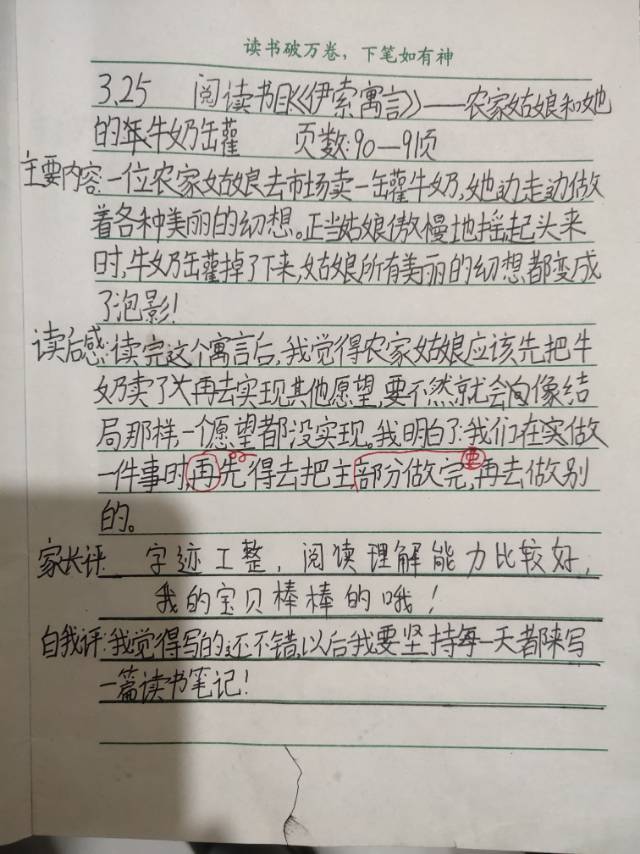 读书破万卷，下笔如有神
3.25 阅读书目《伊索寓言》——农家姑娘和她
的牛奶缶雚 页数:90—91页
主要内容:一位农家姑娘去市场卖一缶雚牛奶,她边走边做
着各种美丽的幻想。正当姑娘傲慢地摇起头来
时,牛奶缶雚掉了下来,姑娘所有美丽的幻想都变成
了泡影!
读后感:读完这个寓言后,我觉得农家姑娘应该先把牛
奶卖了再去实现其他愿望,要不然就会向像结
局那样,一个愿望都没实现。我明白了:我们在实做
一件事时,再先得去把主部分做完,再去做别
要
的。
家长评: 字迹工整,阅读理解能力比较好,
我的宝贝棒棒的哦!
自我评:我觉得写的还不错,以后我要坚持每一天都来写
一篇读书笔记!